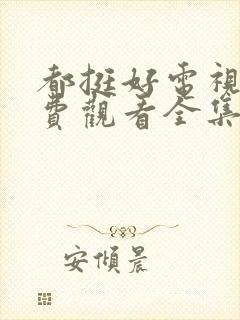 都挺好電視
費觀看全集
安傾晨